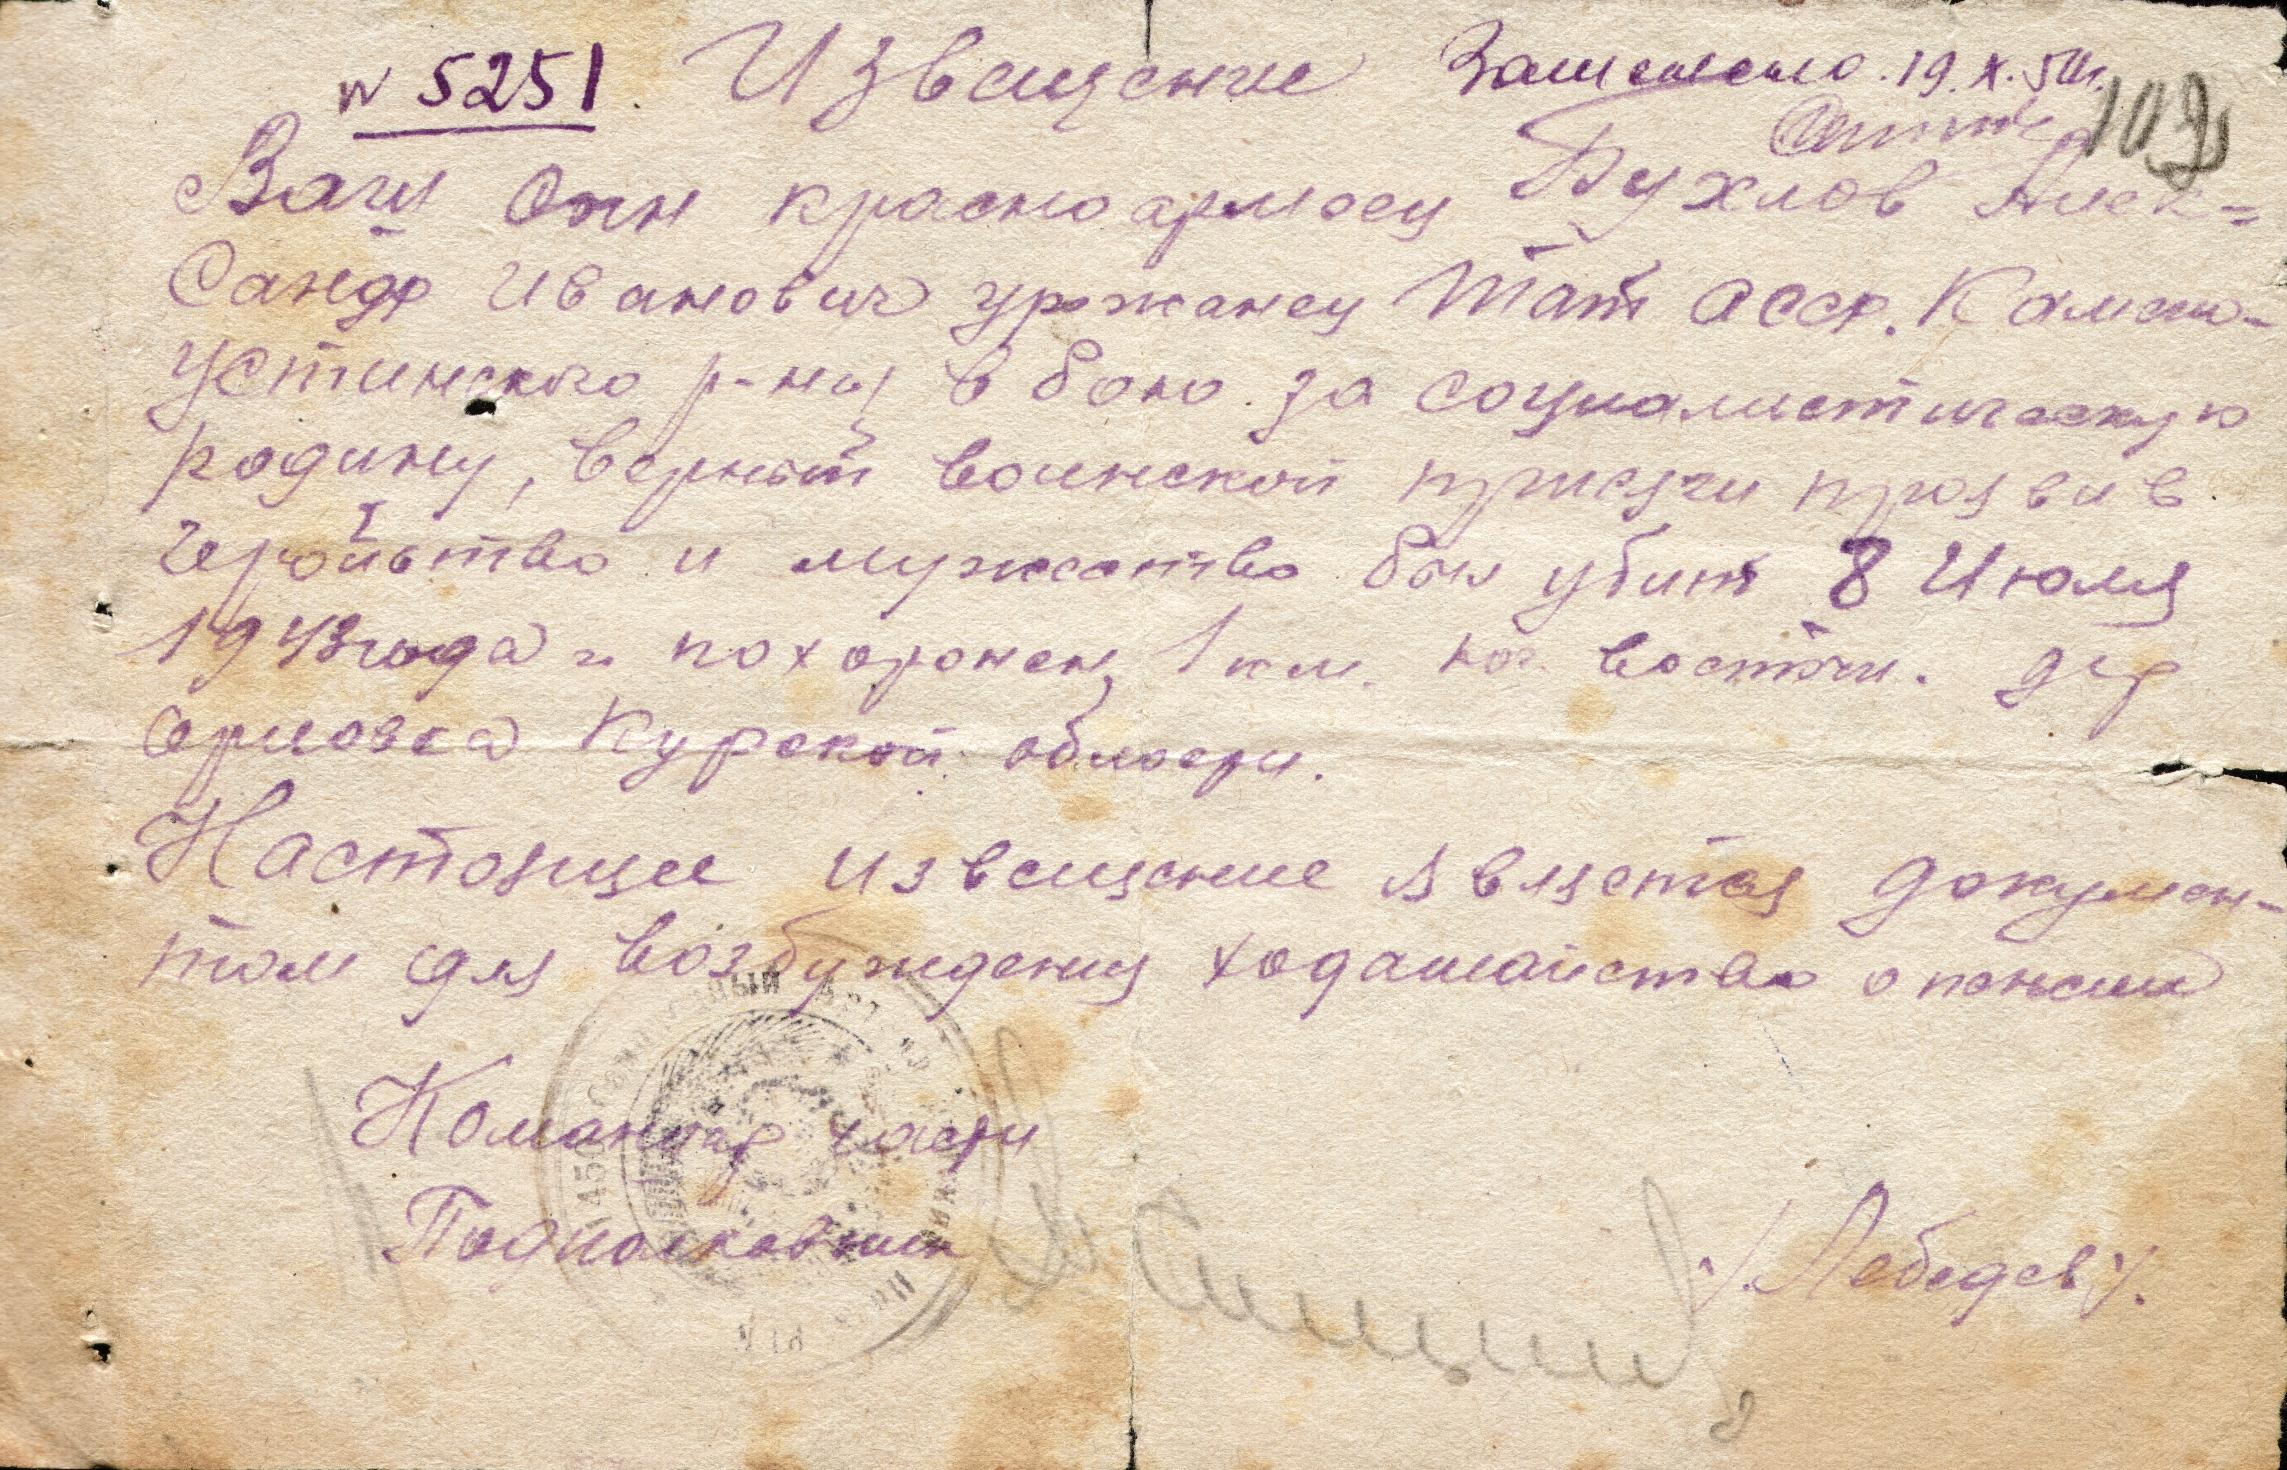 № 5251 Извещение 19.X.51г.
109
Ваш сын красноармеец Бухлов Алек=
сандр Иванович уроженец Тат АССР. Камско-
устинского р-на, в бою за социалистическую
родину, верный воинской присяги проявив
геройство и мужество был убит 8 Июля
1943 года и похоронен, 1 км. юг. восточн. дер
Орловка Курской области.
Настоящее извещение является докумен-
том для возбуждения ходатайства о пенсии
Командир части
Подполковник /. Лебедев /.